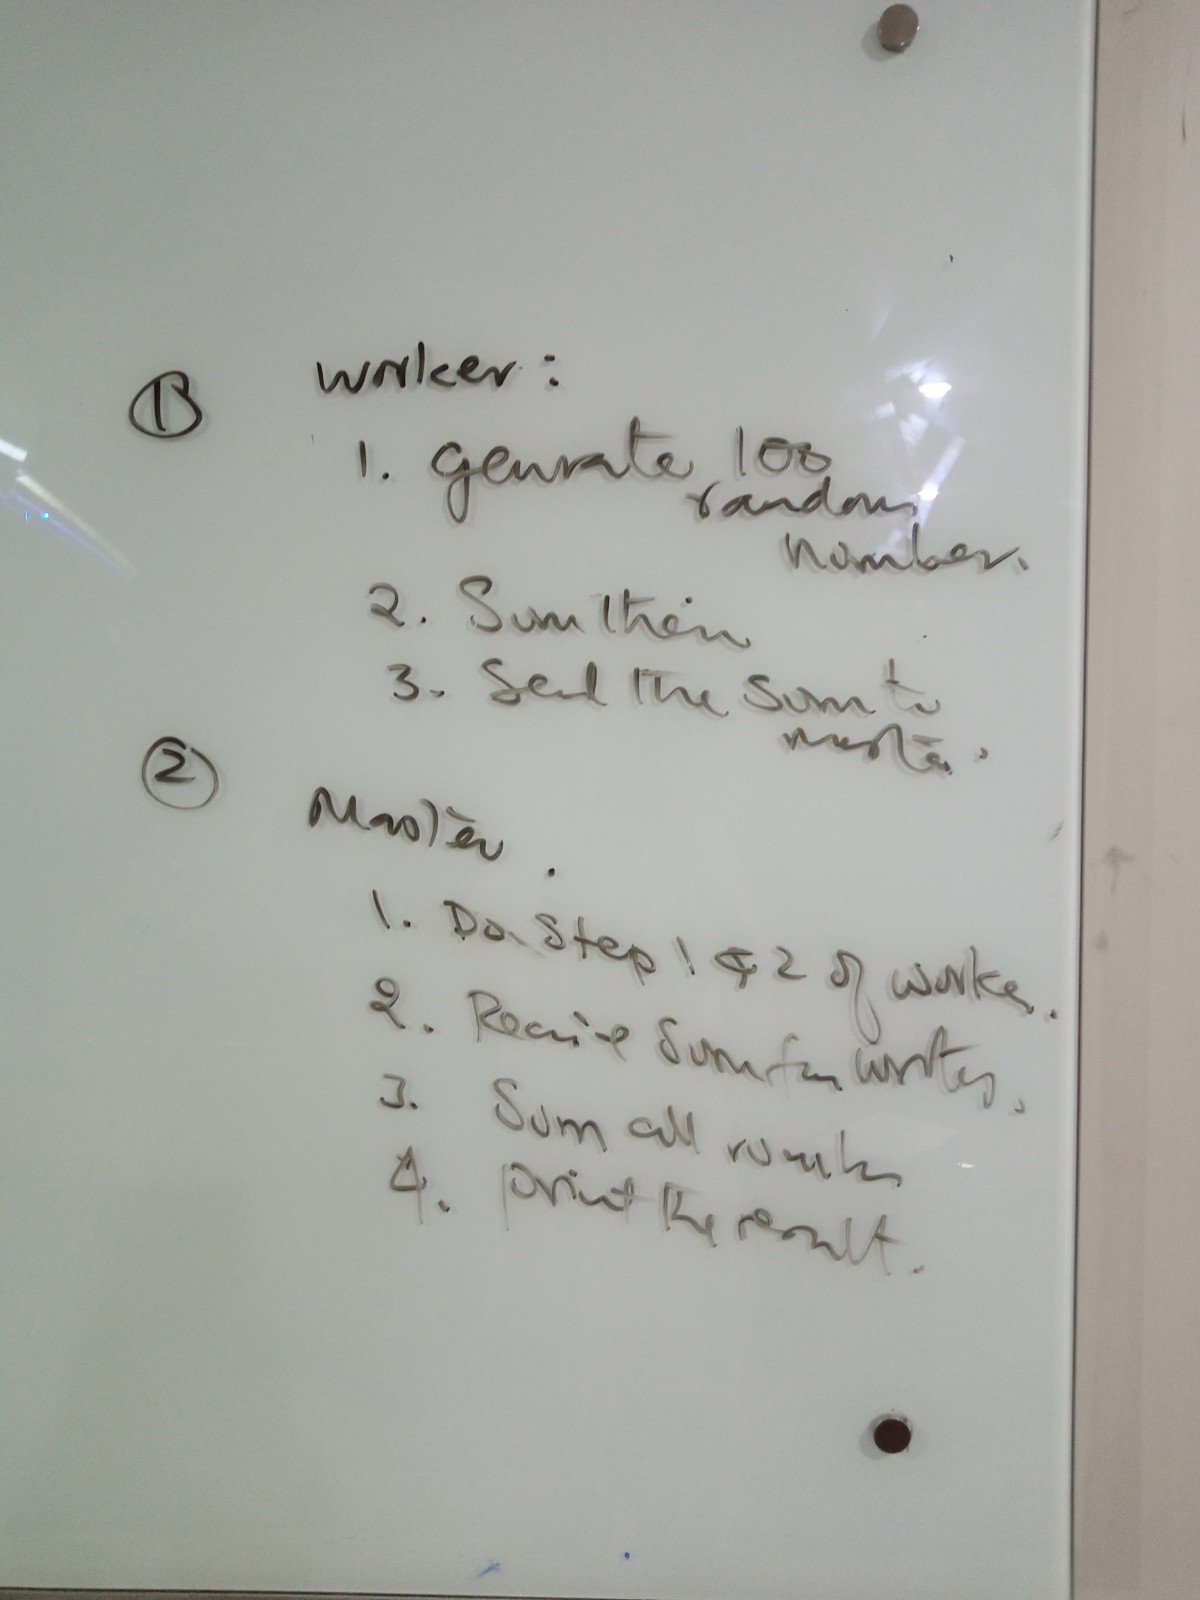 ①
worker:
1. genrate 100
random
number.
2. Sum them
3. Send the sum to
master.
②
Master.
1. Do Step 1 & 2 of worker.
2. Receive Sum from workers.
3. Sum all results
4. print the result.